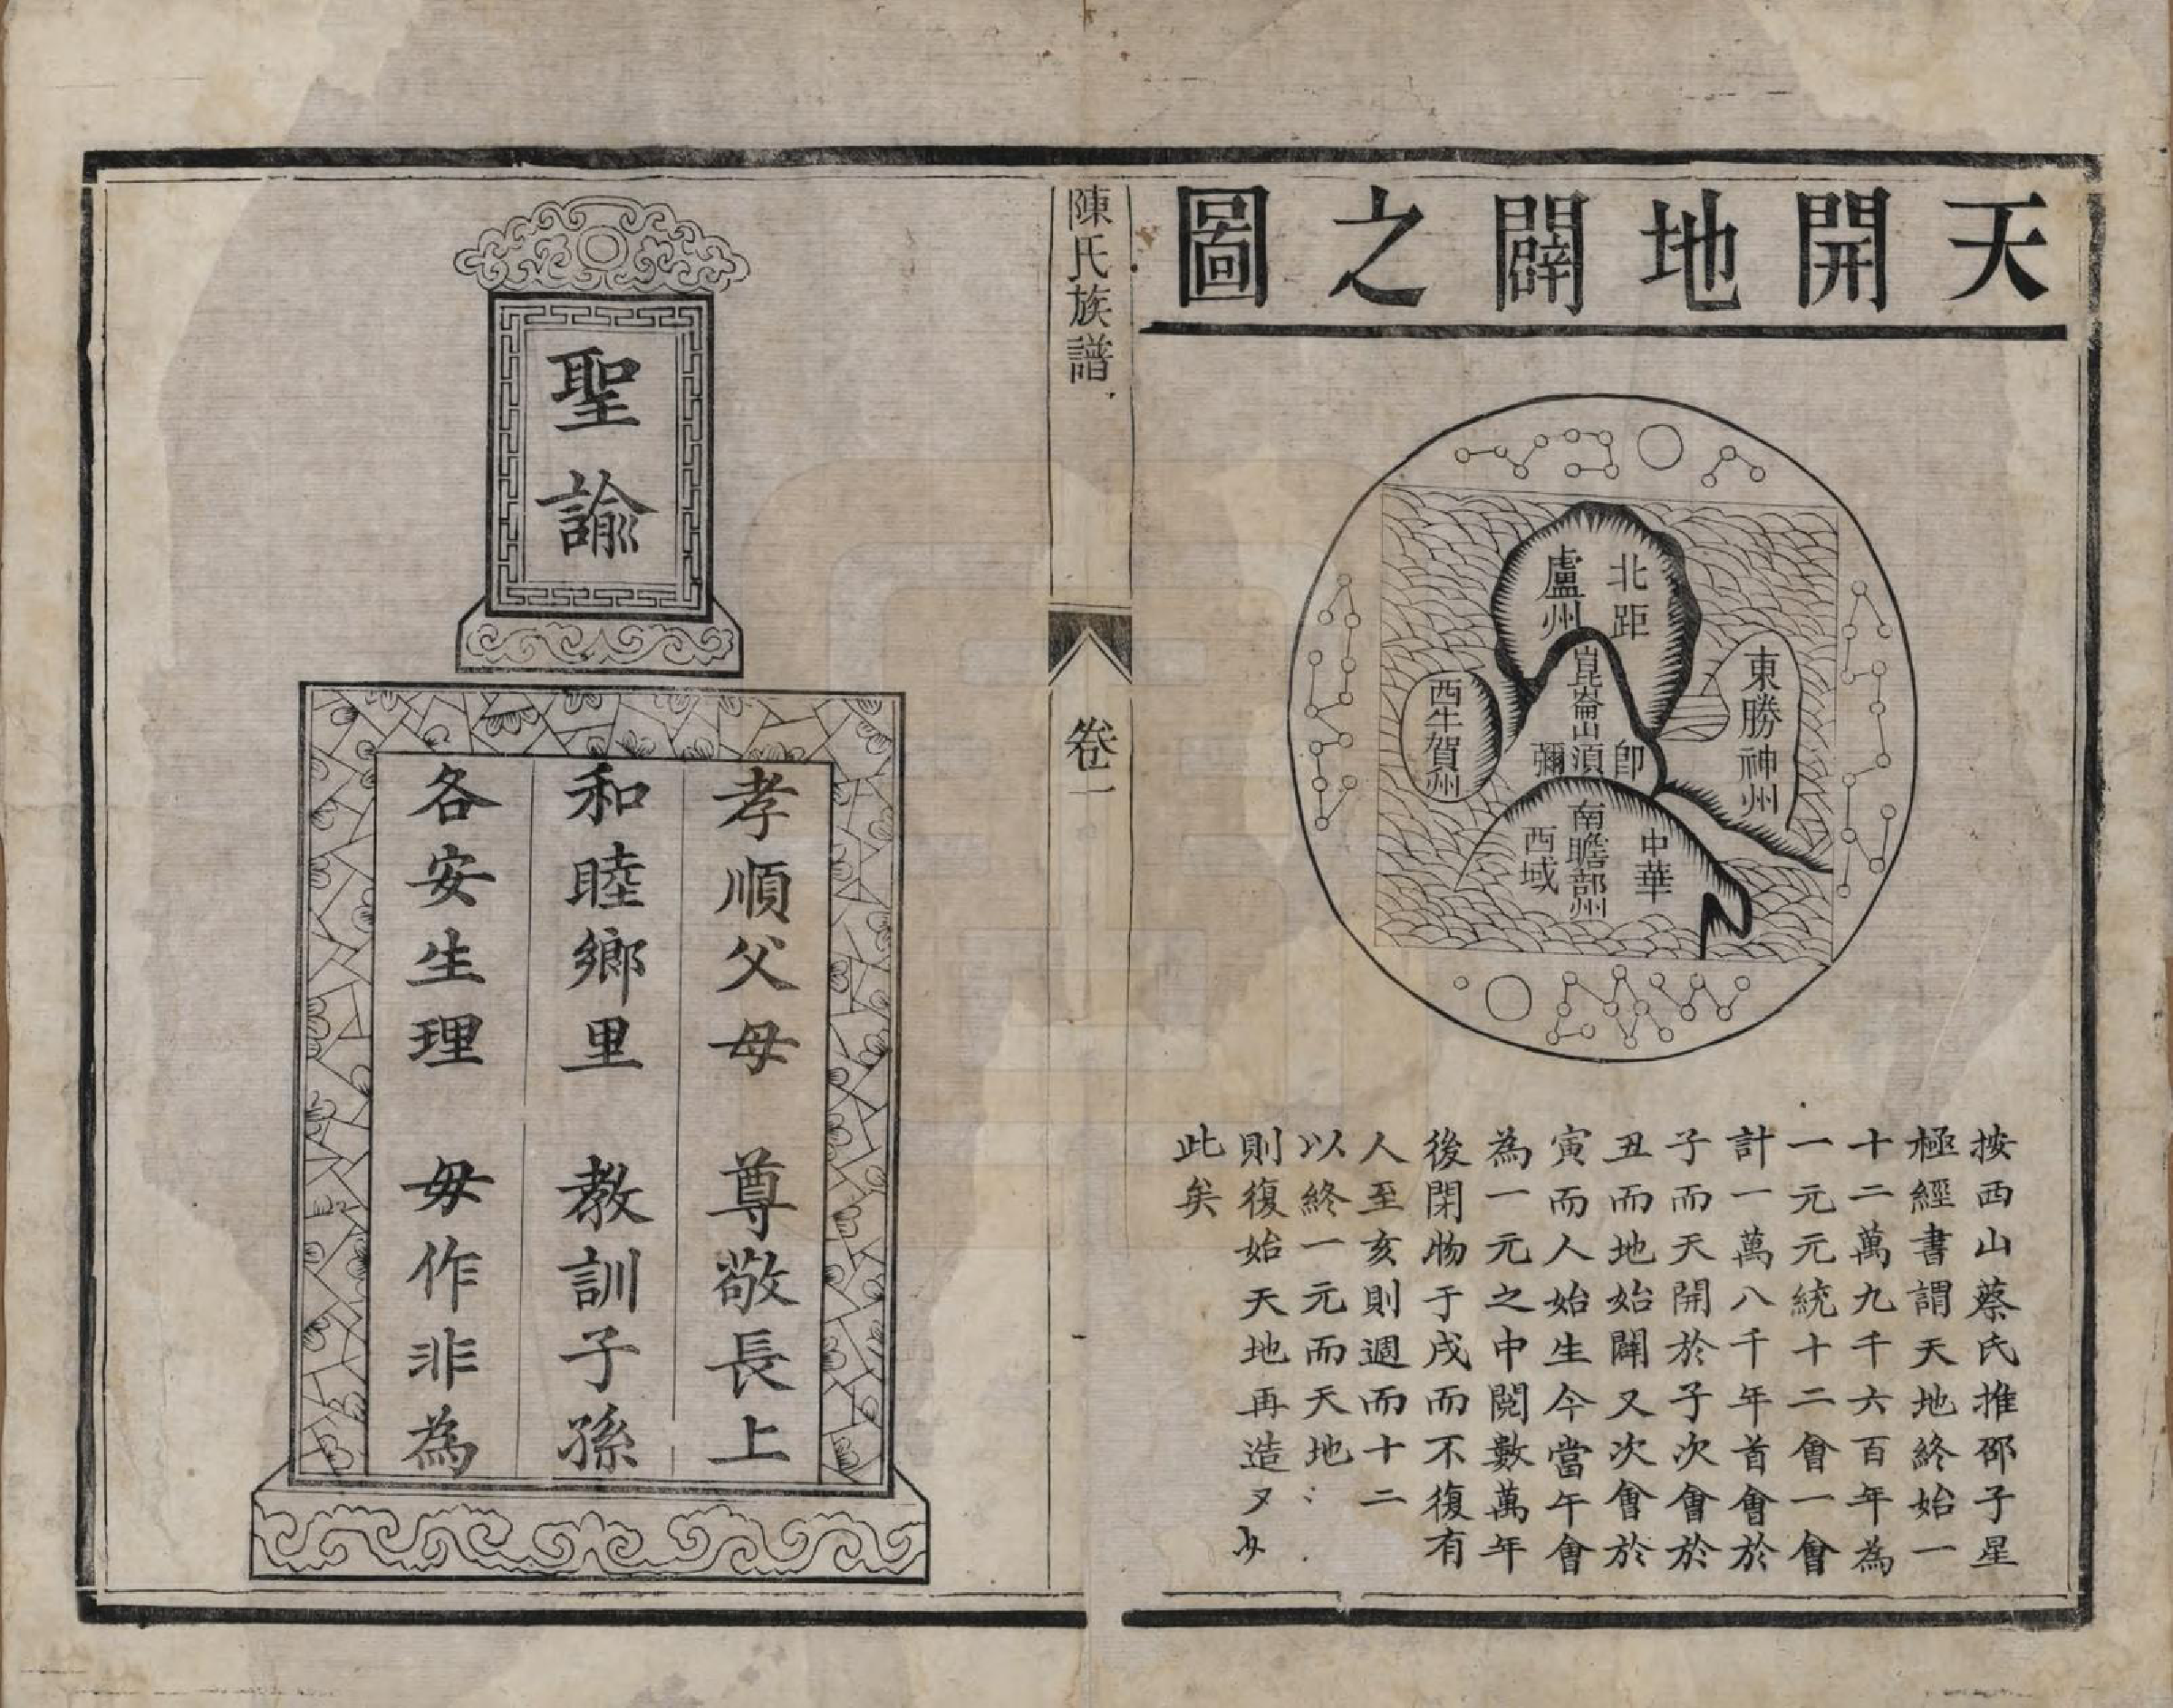 天開地闢之圖
北距
盧州
東勝神州
崑崙山須
卽
彌
西牛賀州
中華
南瞻部州
西域
按西山蔡氏推邵子星
極經書謂天地終始一
十二萬九千六百年為
一元元統十二會一會
計一萬八千年首會於
子而天開於子次會於
丑而地始闢又次會於
寅而人始生今當午會
為一元之中閱數萬年
後閉物于戌而不復有
人至亥則週而十二
以終一元而天地
則復始天地再造
此矣
陳氏族譜
卷一
聖諭
孝順父母 尊敬長上
和睦鄉里 教訓子孫
各安生理 毋作非為